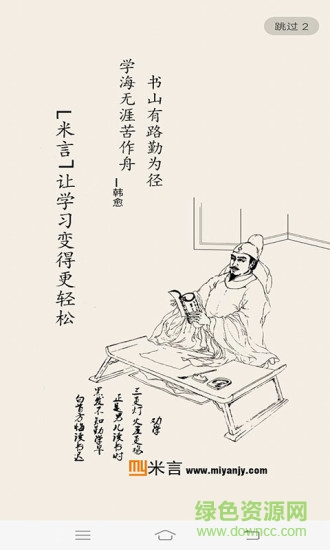 跳过 2
书山有路勤为径
学海无涯苦作舟
—韩愈
「米言」让学习变得更轻松
劝学
三更灯火五更鸡
正是男儿读书时
黑发不知勤学早
白首方悔读书迟
my米言 www.miyanjy.com
绿色资源网
www.downcc.com